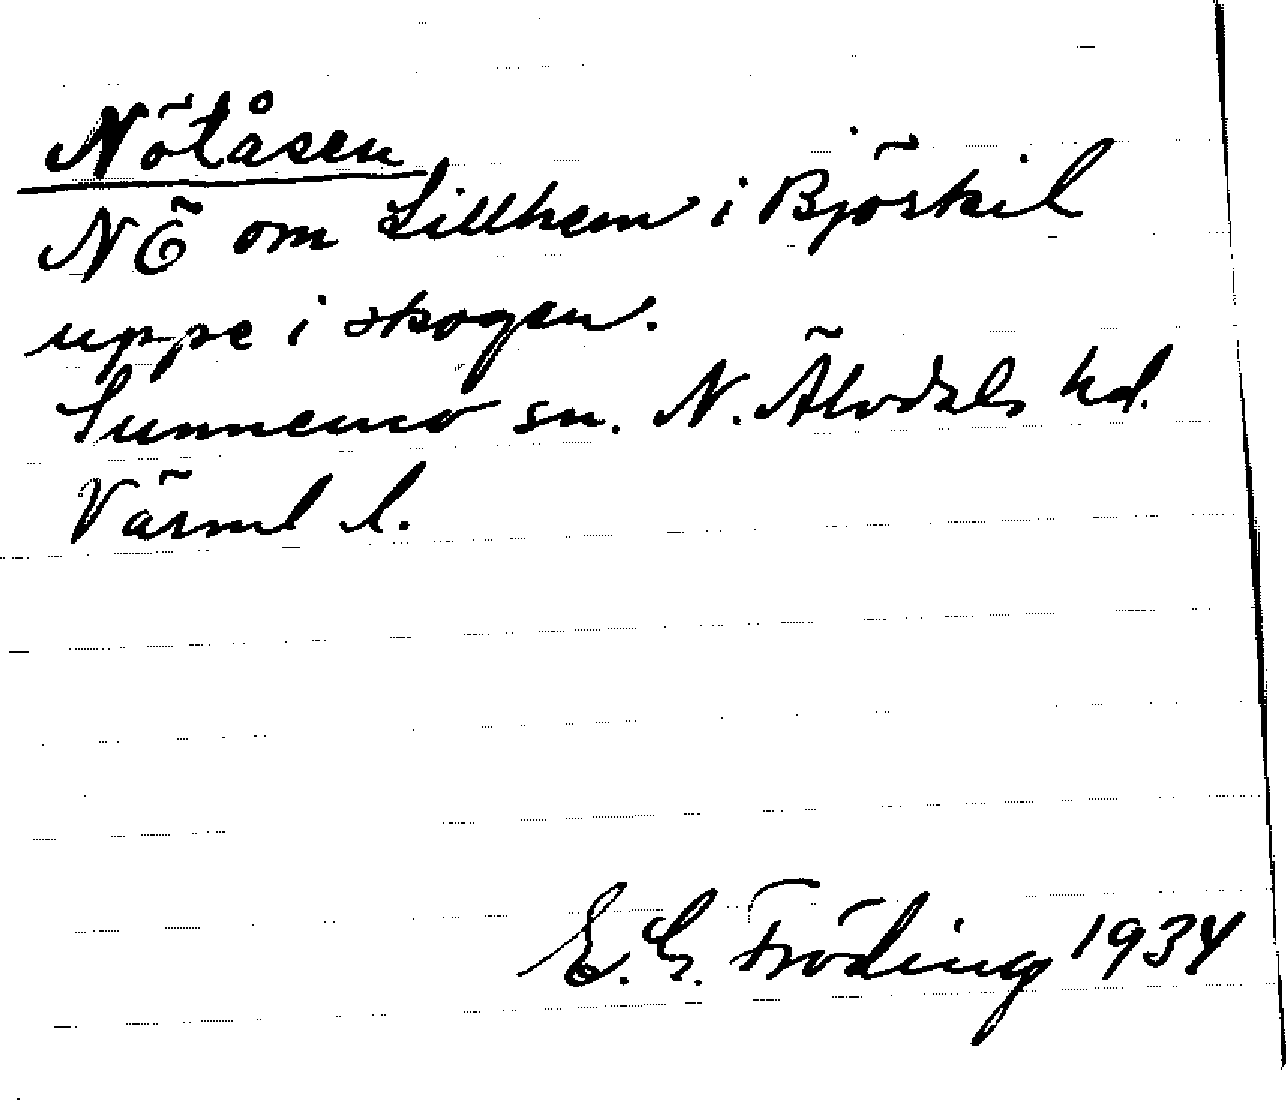 Nötåsen
NÖ om Lillhem i Björkil
uppe i skogen.
Sunnemo sn. N. Älvdals hd.
Värml l.
E. G. Fröding 1934